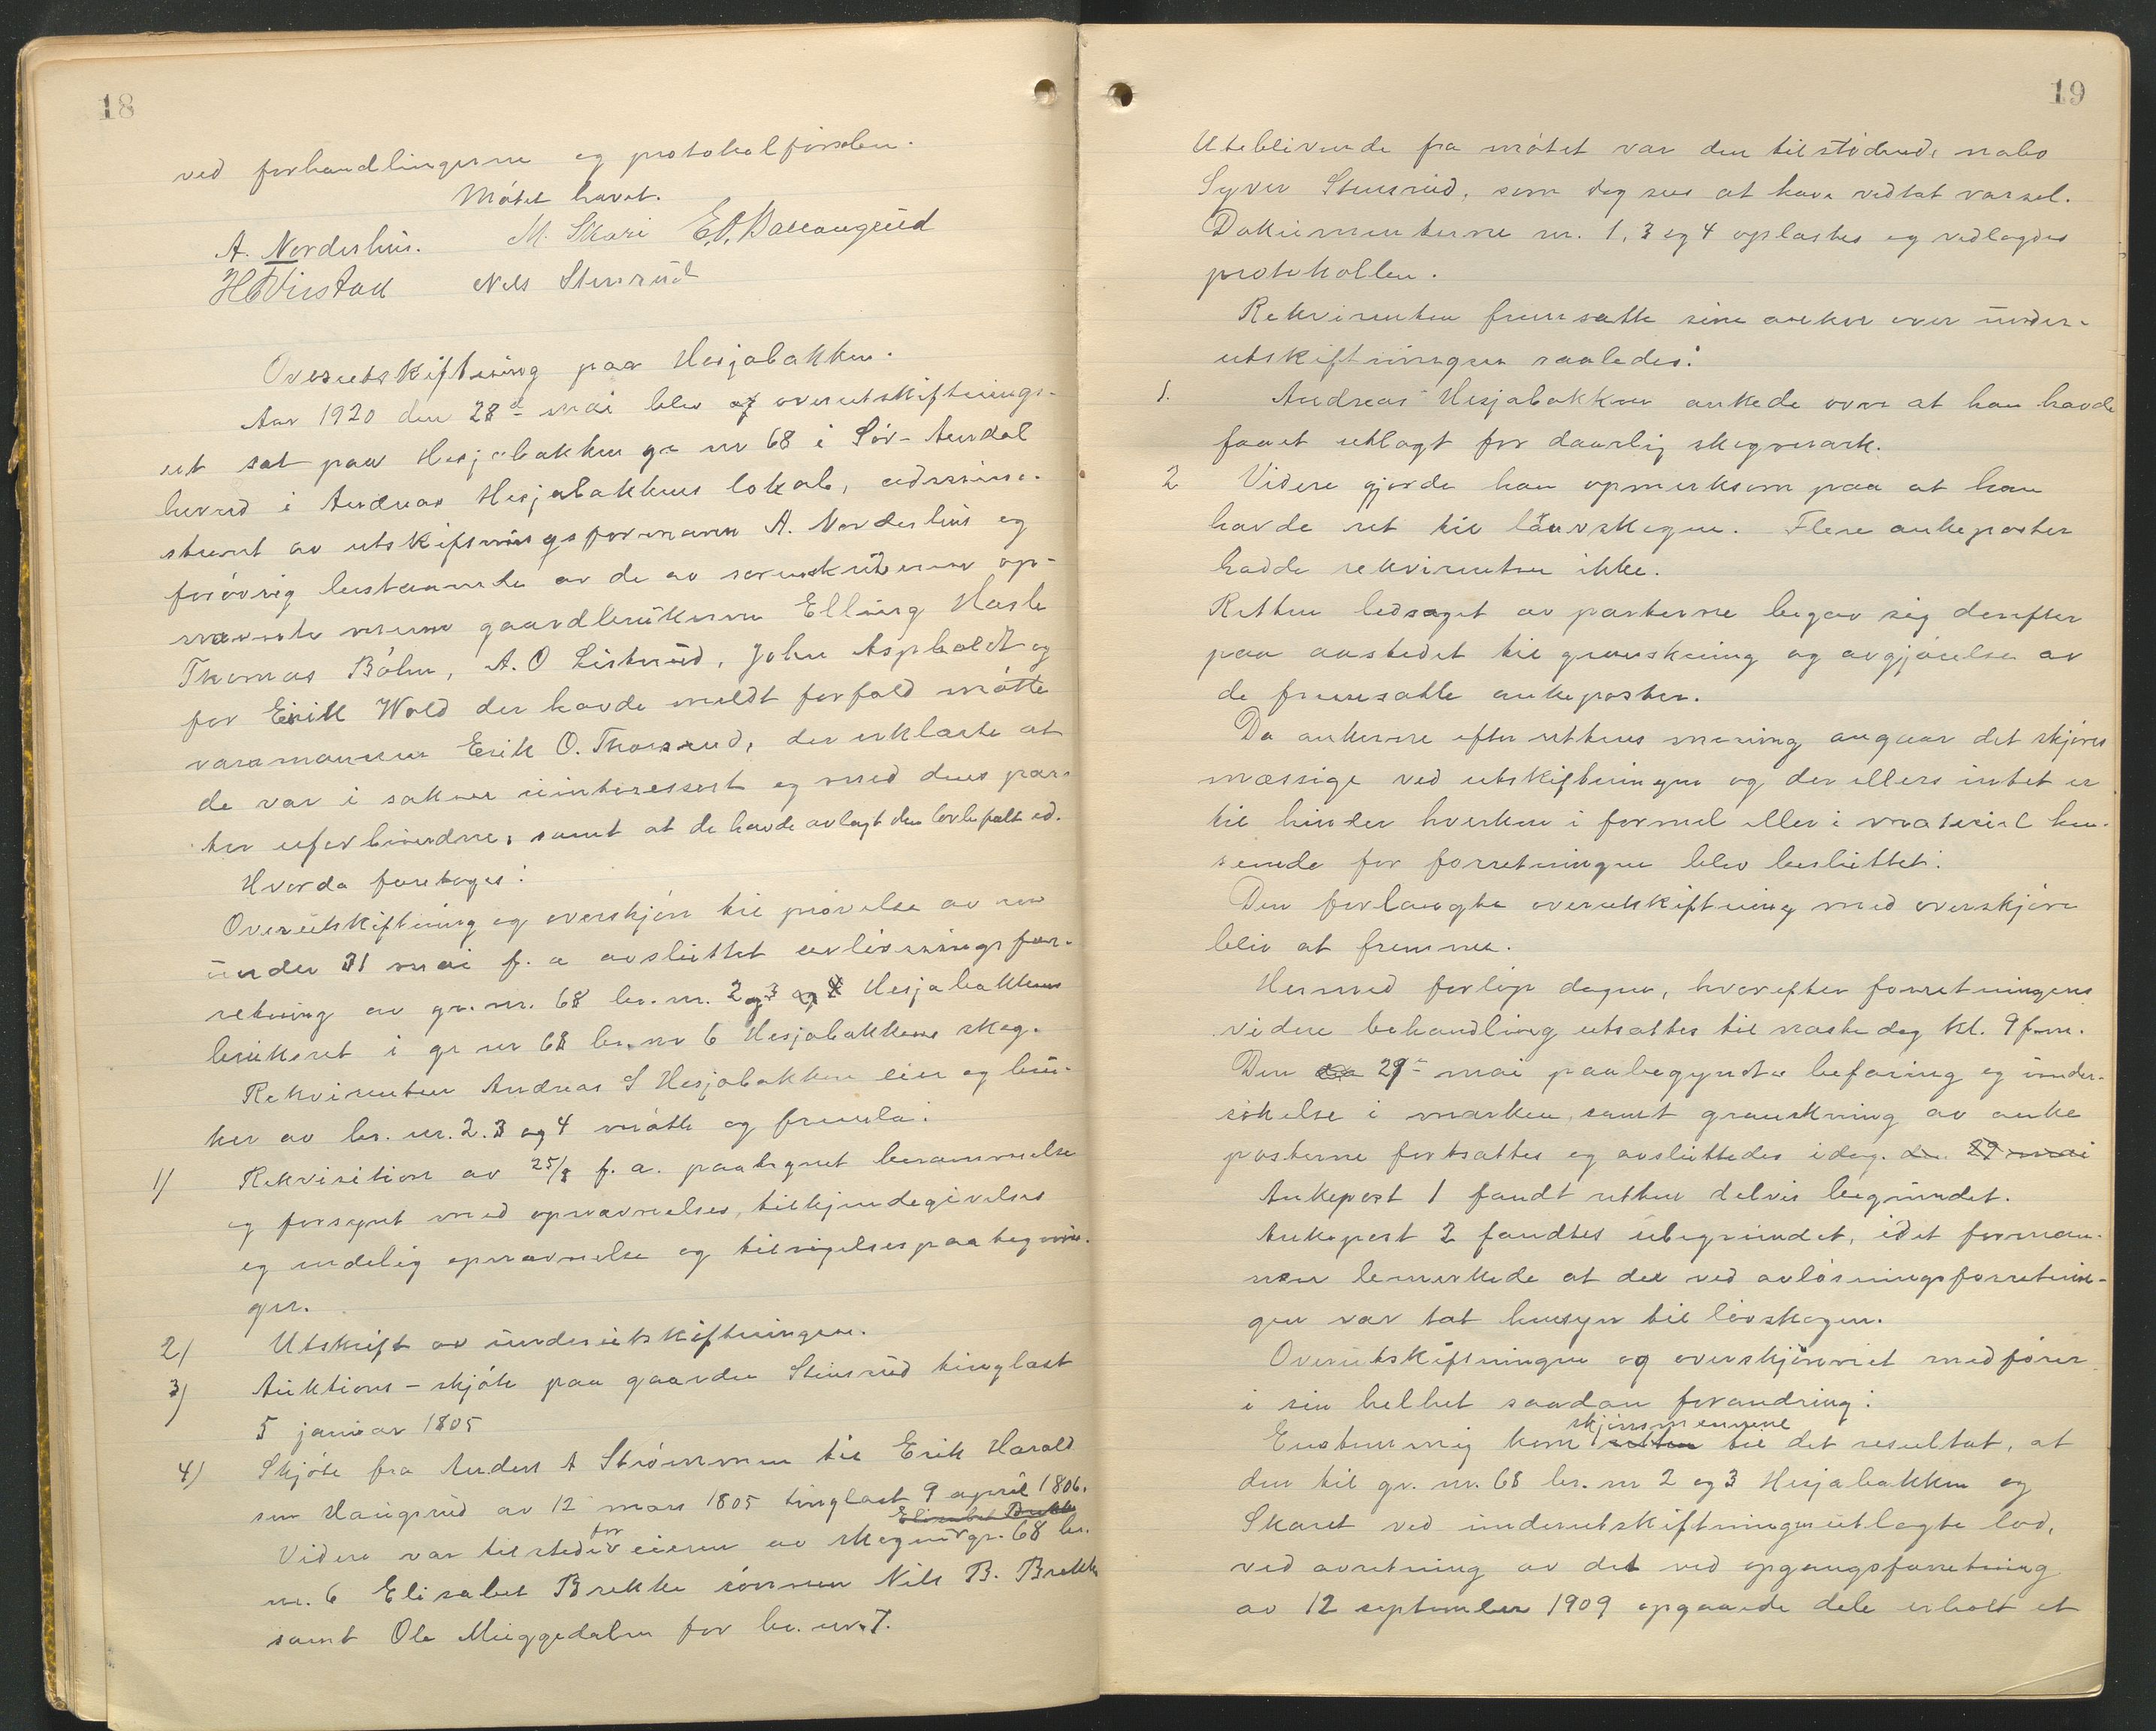 18
ved forhandlingerne og protokolførslen.
Møtet hævet.
A. Norderhus. M. Skari
Nels Stensrud
Overutskiftning paa Hesjabakken.
Aar 1920 den 28de mai blev overutskiftnings-
ret sat paa Hesjabakken gr nr 68 i Sør-Aurdal
herred i Andreas Hesjabakkens lokale, adminis-
streret av utskiftningsformann A. Norderhus og
forøvrig bestaaende av de av sorenskriveren op-
nævnte mænn gaardbrukerne Elling Hasle
Thomas Bøhn, A. O Listerud, John Aspholdt og
for Eirik Wold der havde meldt forfald møtte
varamannen Erik O. Thorsrud, der erklærte at
de var i saken uinteressert og med dens par-
ter uforbindne, samt at de havde avlagt den lovbefalte ed.
Hvorda foretoges:
Overutskiftning og overskjøn til prøvelse av en
under 31 mai f. a avsluttet avløsningsfor-
retning av gr. nr. 68 br. nr. 2 og 3 og 4 Hesjabakkens
bruksret i gr nr 68 br. nr 6 Hesjabakkens skog.
Rekvirenten Andreas S Hesjabakken eier og bru-
ker av br. nr. 2. 3 og 4 møtte og fremla:
1) Rekvisition av 25/8 f. a. paategnet berammelse
og forsynt med opnævnelses, tilkjendegivelses
og endelig opnævnelse og tilsigelsespaategnin-
ger.
2) Utskrift av underutskiftningen.
3) Auktions-skjøte paa gaarden Stensrud tinglæst
5 januar 1805
4) Skjøte fra Anders A Strømmen til Erik Harald
sen Haugsrud av 12 mars 1805 tinglæst 9 april 1806.
Elisabet Brekke
Videre var tilstede for eieren av skogen gr. 68 br.
nr. 6 Elisabet Brekke sønnen Nils B. Brekke
samt Ole Muggedalen for br. nr. 7.
19
Uteblivende fra møtet var den tilstødende nabo
Syver Stensrud, som dog sees at have vedtat varsel.
Dokumenterne nr. 1, 3 og 4 oplæstes og vedlagdes
protokollen.
Rekvirenten fremsatte sine anker over under-
utskiftningen saaledes:
1. Andreas Hesjabakken ankede over at han havde
faaet utlagt for daarlig skogmark.
2 Videre gjorde han opmerksom paa at han
havde ret til lauvskogen. Flere ankeposter
hadde rekvirenten ikke.
Retten ledsaget av parterne begav sig derefter
paa aastedet til granskning og avgjørelse av
de fremsatte ankeposter.
Da ankerne efter rettens mening angaar det skjøns
mæssige ved utskiftningen og der ellers intet er
til hinder hverken i formel eller i materiel hen-
seende for forretningen blev besluttet:
Den forlangte overutskiftning med overskjøn
bliv at fremme.
Hermed forløp dagen, hvorefter forretningens
videre behandling utsattes til næste dag kl. 9 fm.
Den 29de mai paabegyndtes befaring og under-
søkelse i marken, samt granskning av anke
posterne fortsattes og avsluttedes idag. den 29 mai
Ankepost 1 fandt retten delvis begrundet.
Ankepost 2 fandtes ubegrundet, idet forman-
nen bemerkede at der ved avløsningsforretnin-
gen var tat hensyn til løvskogen.
Overutskiftningen og overskjønnet medfører
i sin helhet saadan forandring:
skjønsmennene
Enstemmig kom retten til det resultat, at
den til gr. nr. 68 br. nr 2 og 3 Hesjabakken og
Skaret ved underutskiftningen utlagte lod,
ved avretning av det ved opgangsforretning
av 12 september 1909 opgaaede dele erholt et